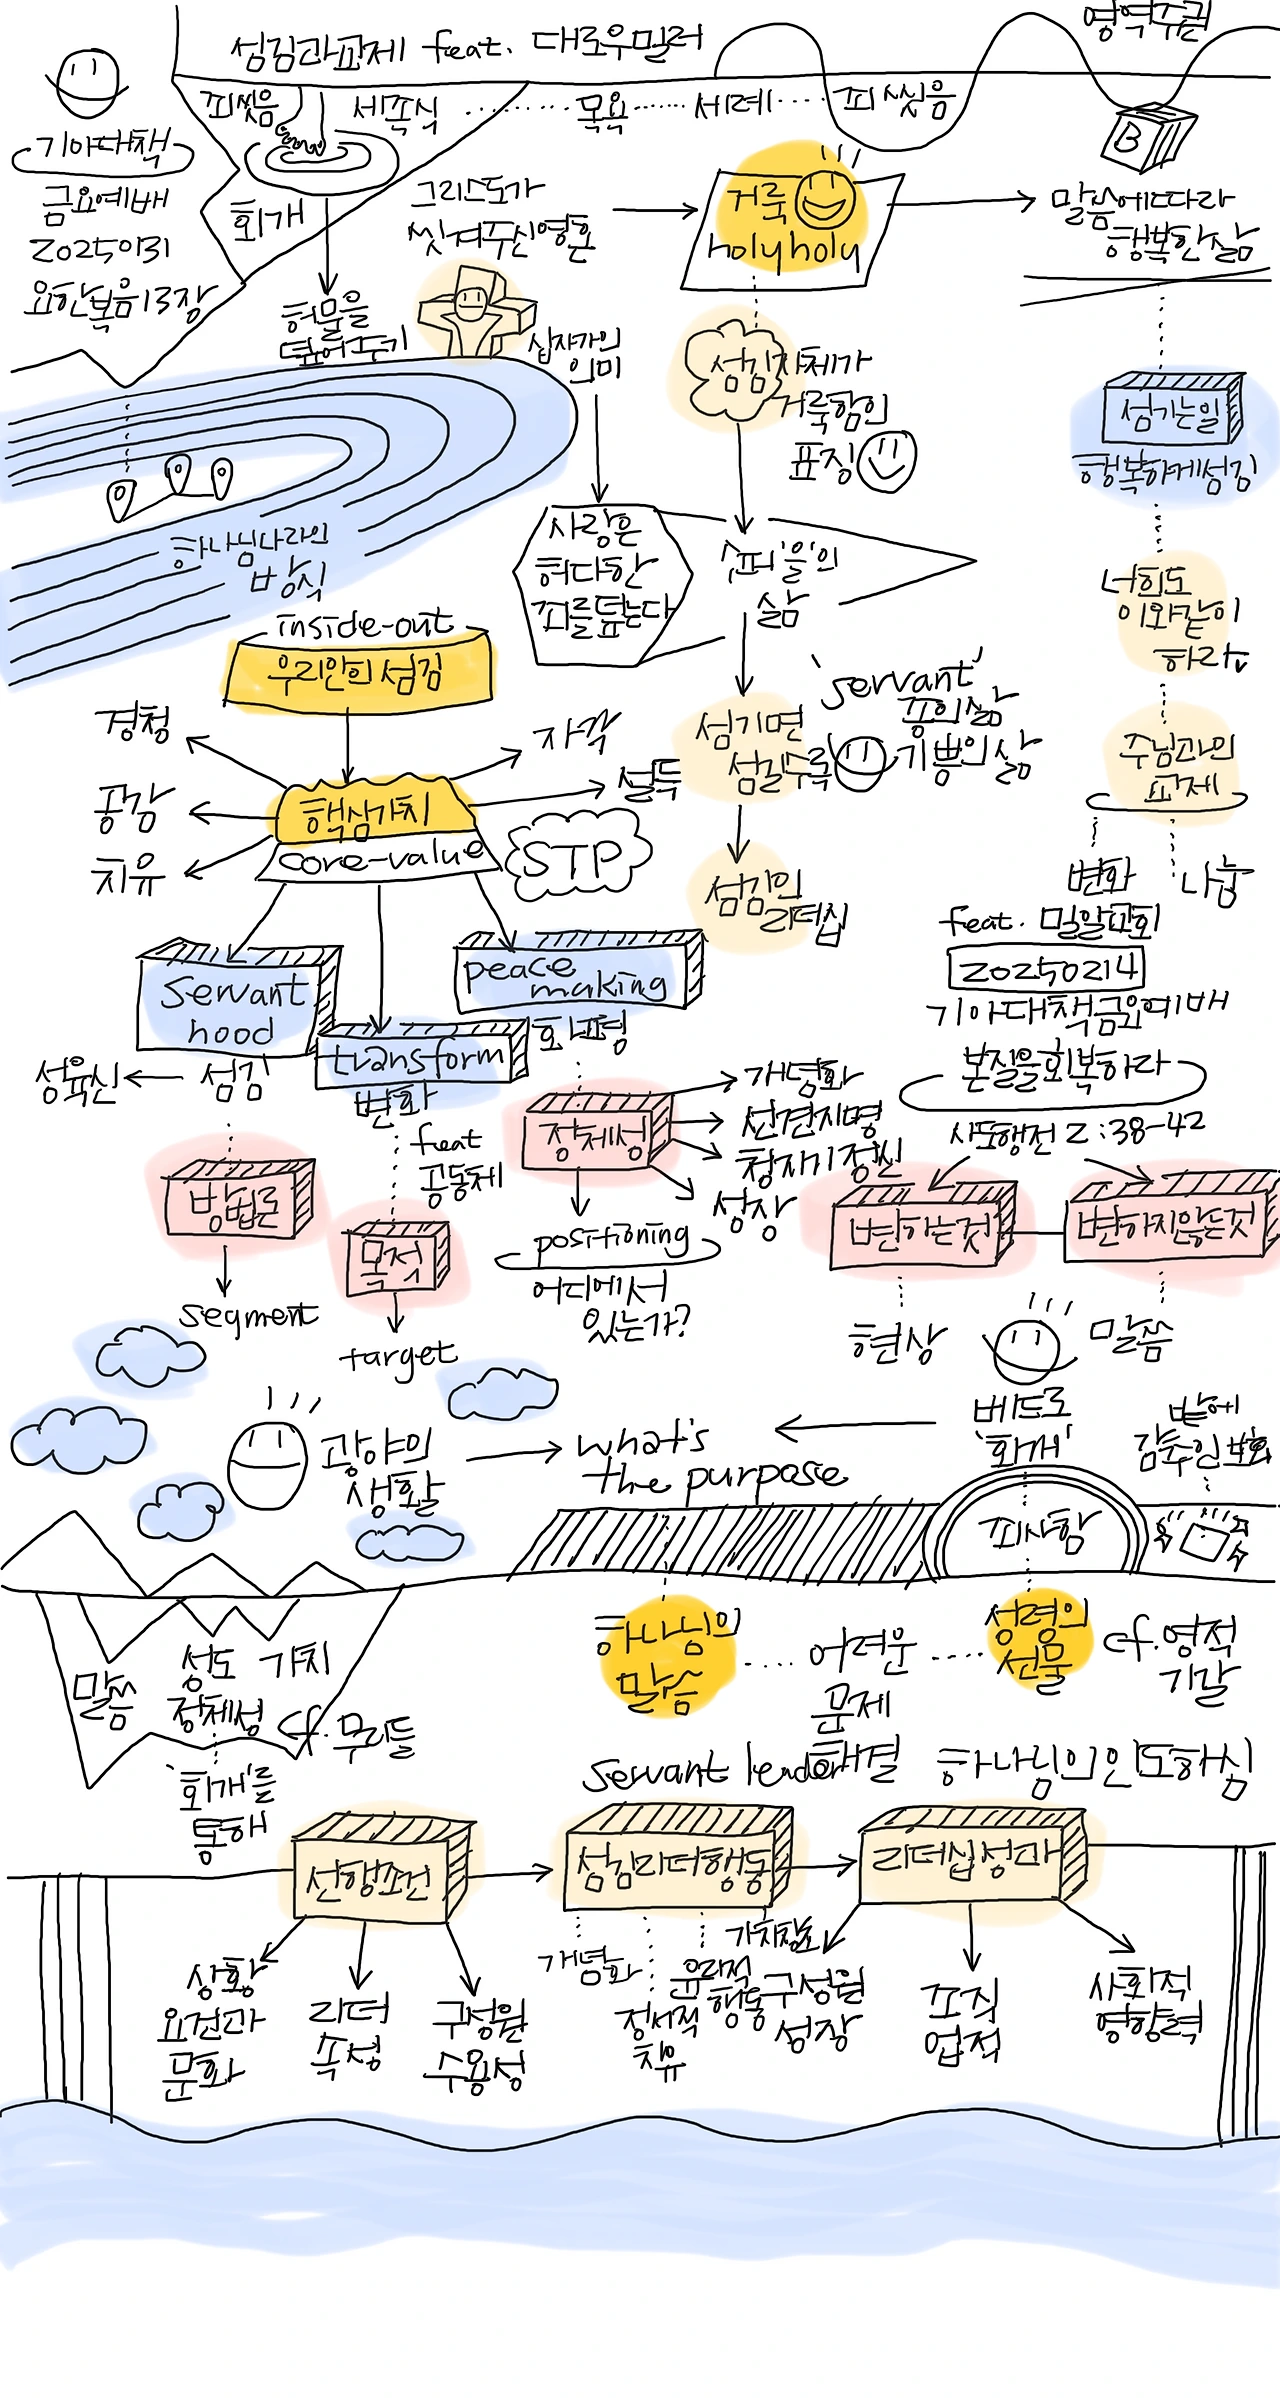 섬김과교제 feat. 대로우밀러
영역주권
기아대책
금요예배
20250131
요한복음13장
피씻음
세족식
목욕
세례
피씻음
회개
허물을
덮어주기
그리스도가
씻겨주신영혼
십자가의
의미
거룩
holyholy
B
말씀에따라
행복한삶
섬김자체가
거룩함의
표징
섬기는일
행복하게섬김
하나님나라의
방식
사랑은
허다한
죄를덮는다
삶
너희도
이와같이
하라
inside-out
우리안의섬김
경청
공감
치유
자각
설득
핵심가치
core-value
STP
섬기면
섬길수록
'servant'
종의삶
기쁨의삶
주님과의
교제
변화
나눔
섬김의
리더십
feat. 밀알교회
20250214
기아대책금요예배
본질을회복하라
사도행전 2:38-42
servant
hood
섬김
성육신
transform
변화
feat
공동체
peace
making
화평
방법론
segment
목적
target
정체성
개념화
선견지명
청지기정신
성장
positioning
어디에서
있는가?
변하는것
변하지않는것
현상
말씀
베드로
'회개'
밭에
감추인보화
광야의
생활
what's
the purpose
죄사함
하나님의
말씀
어려운
문제
해결
성령의
선물
cf.영적
기갈
말씀
성도
정체성
가치
cf.무리들
'회개'를
통해
servant leader
하나님의인도하심
선행조건
섬김리더행동
리더십성과
상황
요건과
문화
리더
속성
구성원
수용성
개념화
정서적
치유
윤리적
행동
가치창조
구성원
성장
조직
업적
사회적
영향력